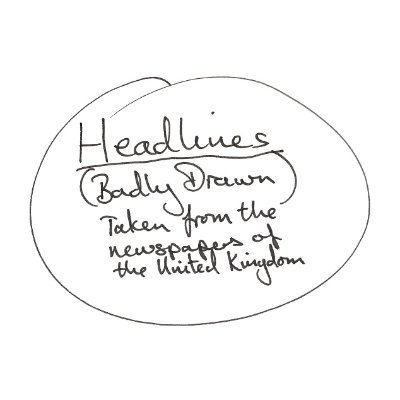 Headlines
(Badly Drawn)
Taken from the
newspapers of
the United Kingdom